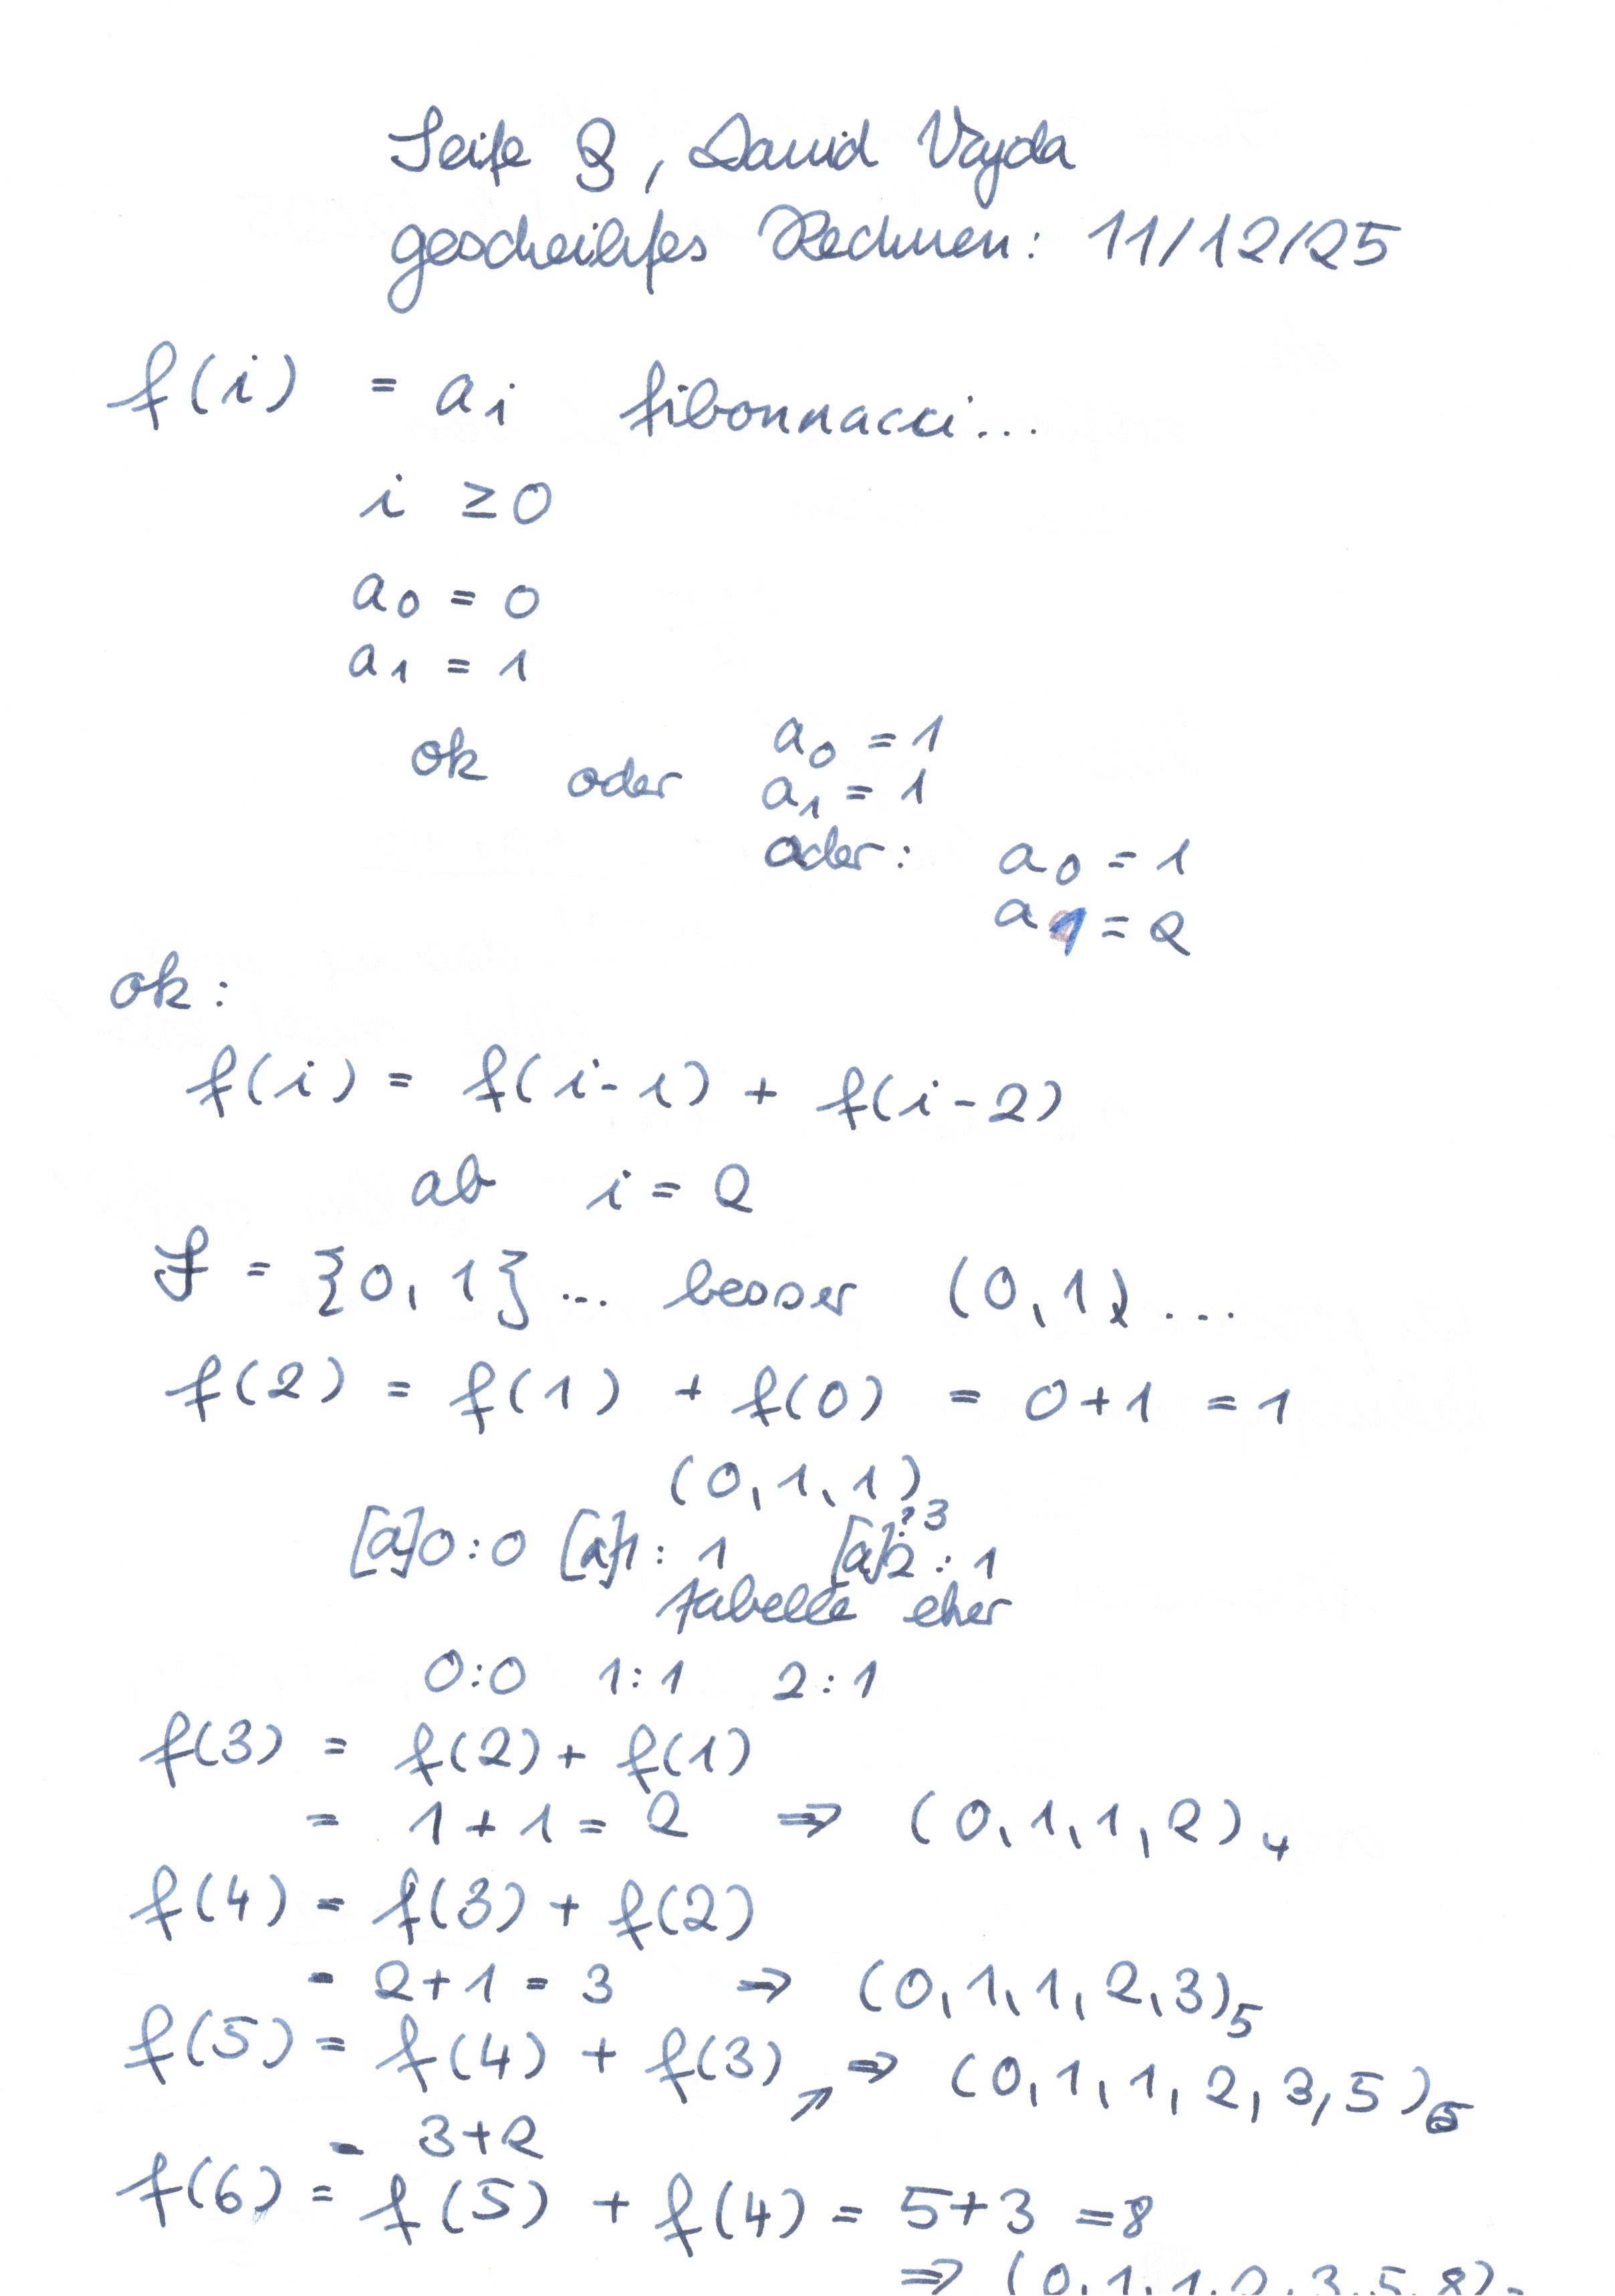 Seite 3, David Vajda
gescheites Rechnen: 11/12/25
f(i) = a i fibonnacci...
i ≥ 0
a0 = 0
a1 = 1
ok oder a0 = 1
a1 = 1
oder: a0 = 1
a1 = 2
ok:
f(i) = f(i-1) + f(i-2)
ab i = 2
F = {0, 1} ... besser (0, 1) ...
f(2) = f(1) + f(0) = 0+1 = 1
(0, 1, 1), 3
[a]0:0 [a]1: 1 [a]2: 1
tabelle eher
0:0 1:1 2:1
f(3) = f(2) + f(1)
= 1 + 1 = 2 ⇒ (0, 1, 1, 2)4
f(4) = f(3) + f(2)
= 2+1 = 3 ⇒ (0, 1, 1, 2, 3)5
f(5) = f(4) + f(3) ⇒ (0, 1, 1, 2, 3, 5)6
= 3+2
f(6) = f(5) + f(4) = 5+3 = 8
⇒ (0, 1, 1, 2, 3, 5, 8)